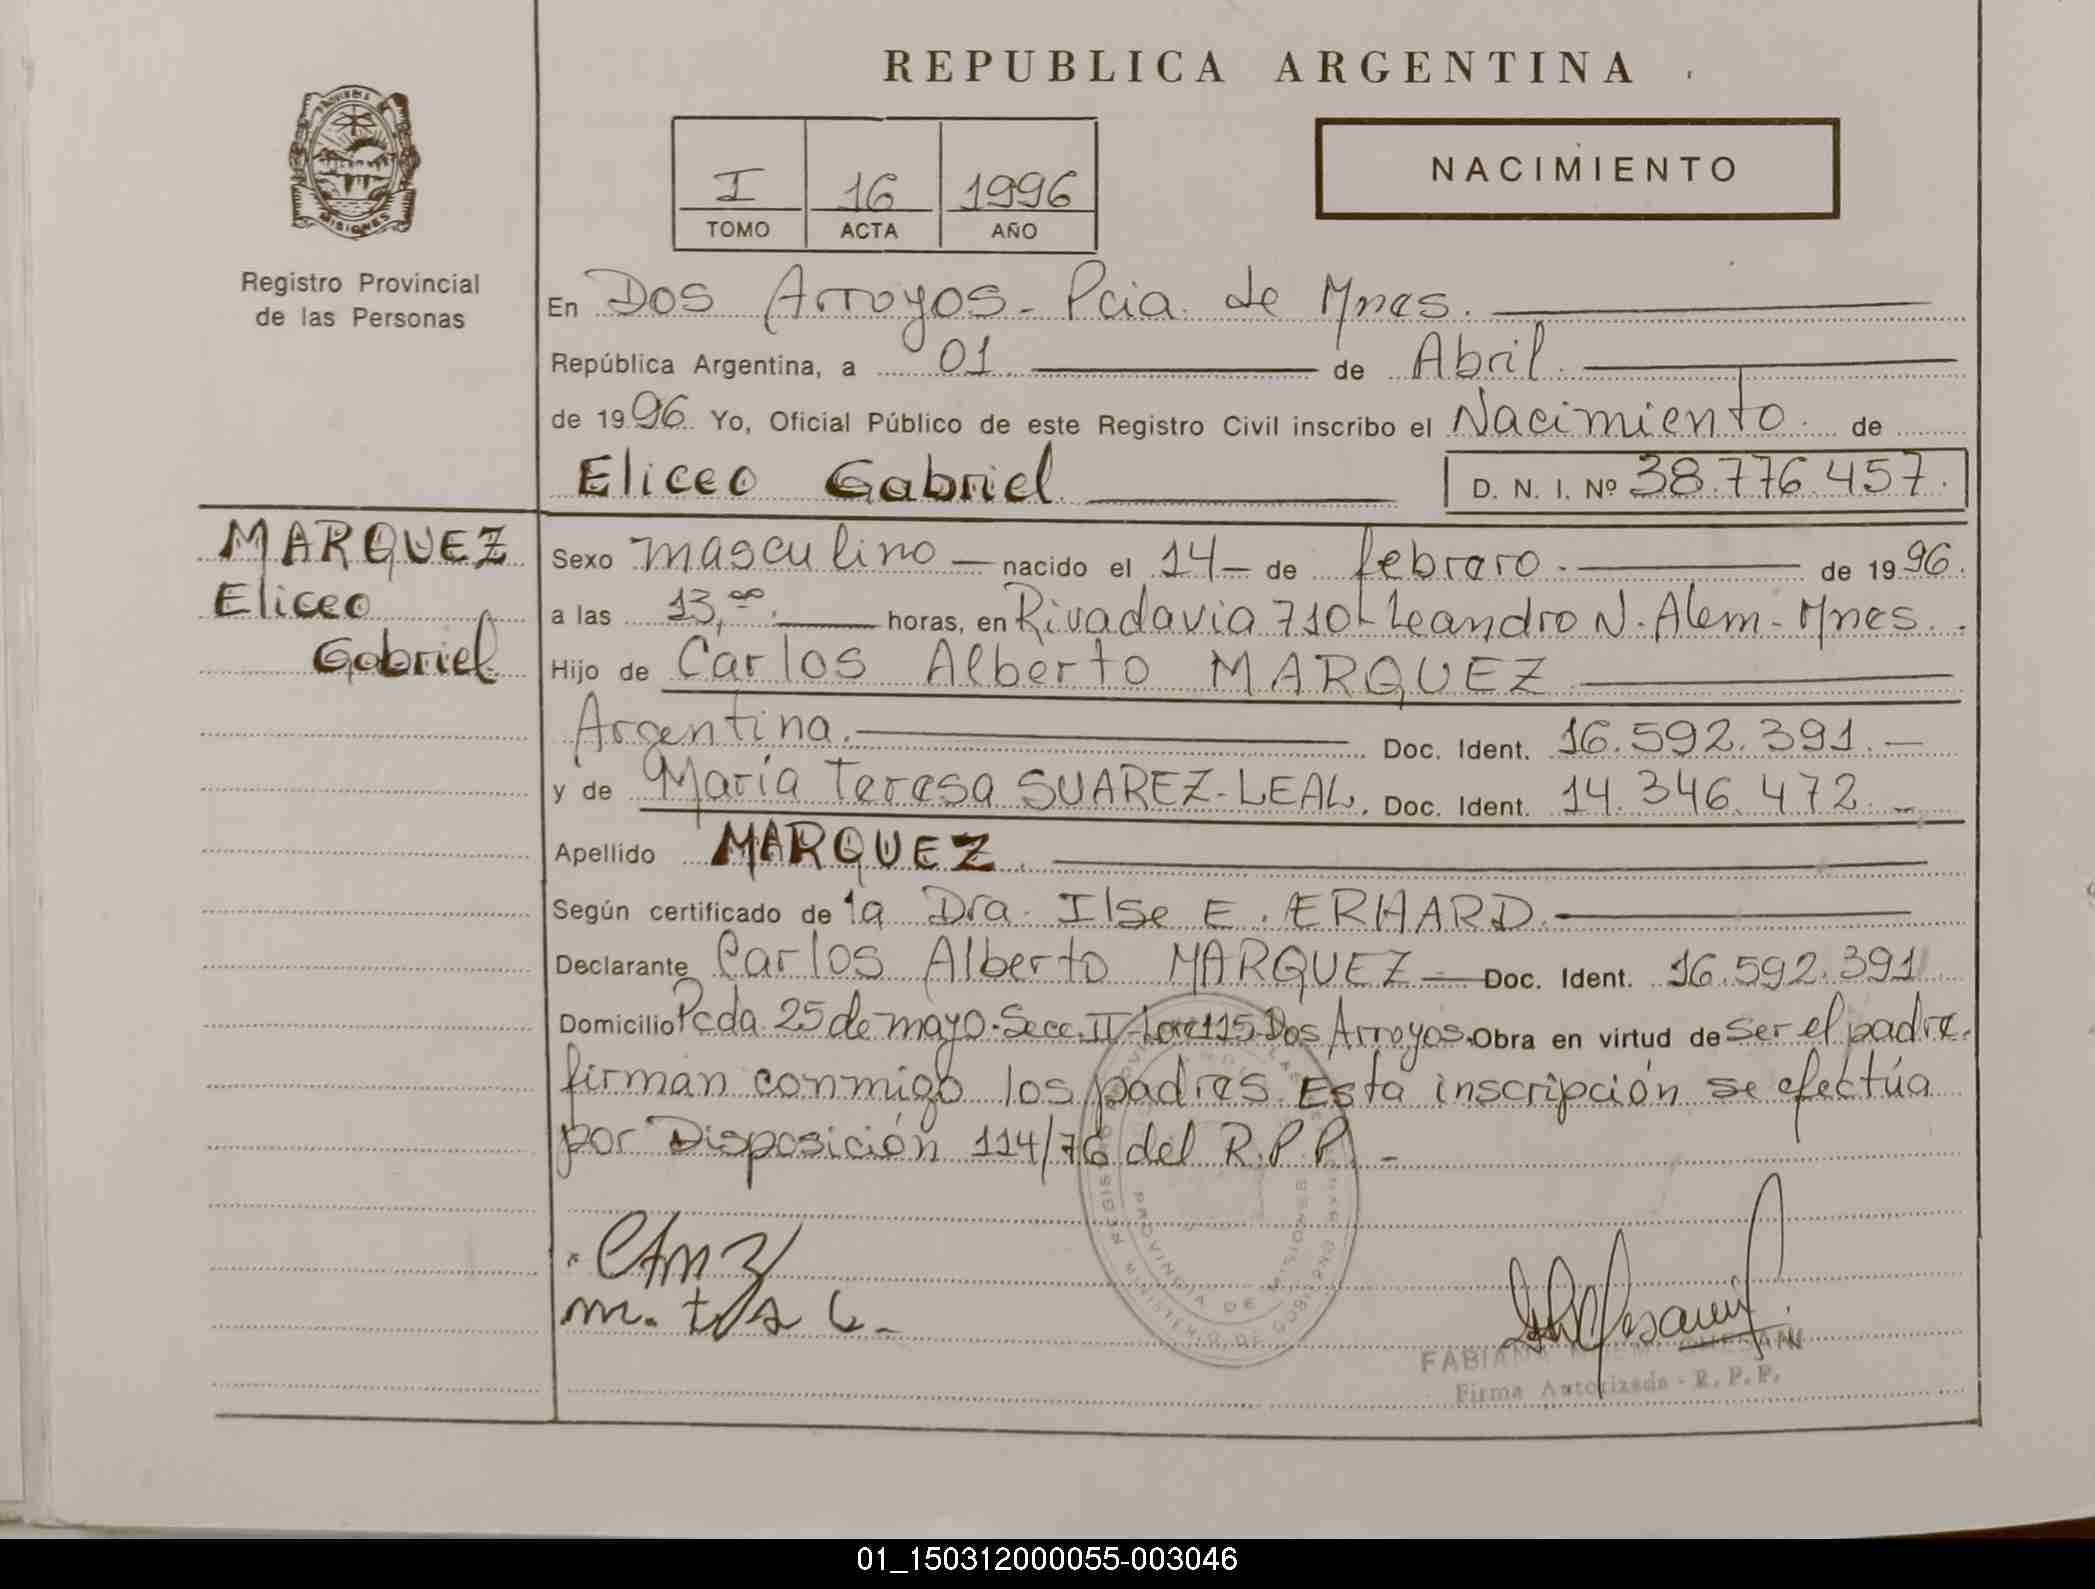 REPUBLICA ARGENTINA
NACIMIENTO
I 16 1996
TOMO ACTA AÑO
Registro Provincial
de las Personas
En Dos Arroyos - Pcia. de Mnes.
República Argentina, a 01 de Abril
de 1996 Yo, Oficial Público de este Registro Civil inscribo el Nacimiento de
Eliceo Gabriel D. N. I. Nº 38.776.457.
MARQUEZ
Eliceo
Gabriel
Sexo masculino - nacido el 14 - de febrero. de 1996.
a las 13,00. horas, en Rivadavia 710 - Leandro N. Alem - Mnes.
Hijo de Carlos Alberto MARQUEZ
Argentina. Doc. Ident. 16.592.391.-
y de María Teresa SUAREZ-LEAL. Doc. Ident. 14.346.472.-
Apellido MARQUEZ.
Según certificado de la Dra. Ilse E. ERHARD.
Declarante Carlos Alberto MARQUEZ - Doc. Ident. 16.592.391
Domicilio Pcda. 25 de mayo - Secc. II - Lote 115 - Dos Arroyos. Obra en virtud de ser el padre.
firman conmigo los padres. Esta inscripción se efectúa
por Disposición 114/76 del R.P.P. -
PROVINCIA DE MISIONES
MINISTERIO DE GOBIERNO
Firma Autorizada - R. P. P.
01_150312000055-003046